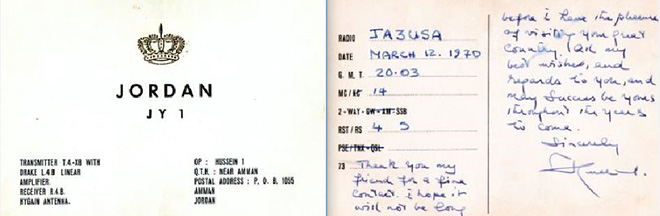 JORDAN
JY 1
TRANSMITTER T.4-XB WITH
DRAKE L.4B LINEAR
AMPLIFIER.
RECEIVER R.4B.
HYGAIN ANTENNA.
OP : HUSSEIN I
Q.T.H. : NEAR AMMAN
POSTAL ADDRESS : P. O. B. 1055
AMMAN
JORDAN
RADIO JA3USA
DATE MARCH 12. 1970
G. M. T. 20.03
MC/KC 14
2-WAY-CW-AM-SSB
RST/RS 4 5
PSE/TNX-QSL
73 Thank you my
friend for a fine
contact. i hope it
will not be long
before i have the pleasure
of visiting your great
country. All my
best wishes, and
regards to you, and
may success be yours
throughout the years
to come.
Sincerely